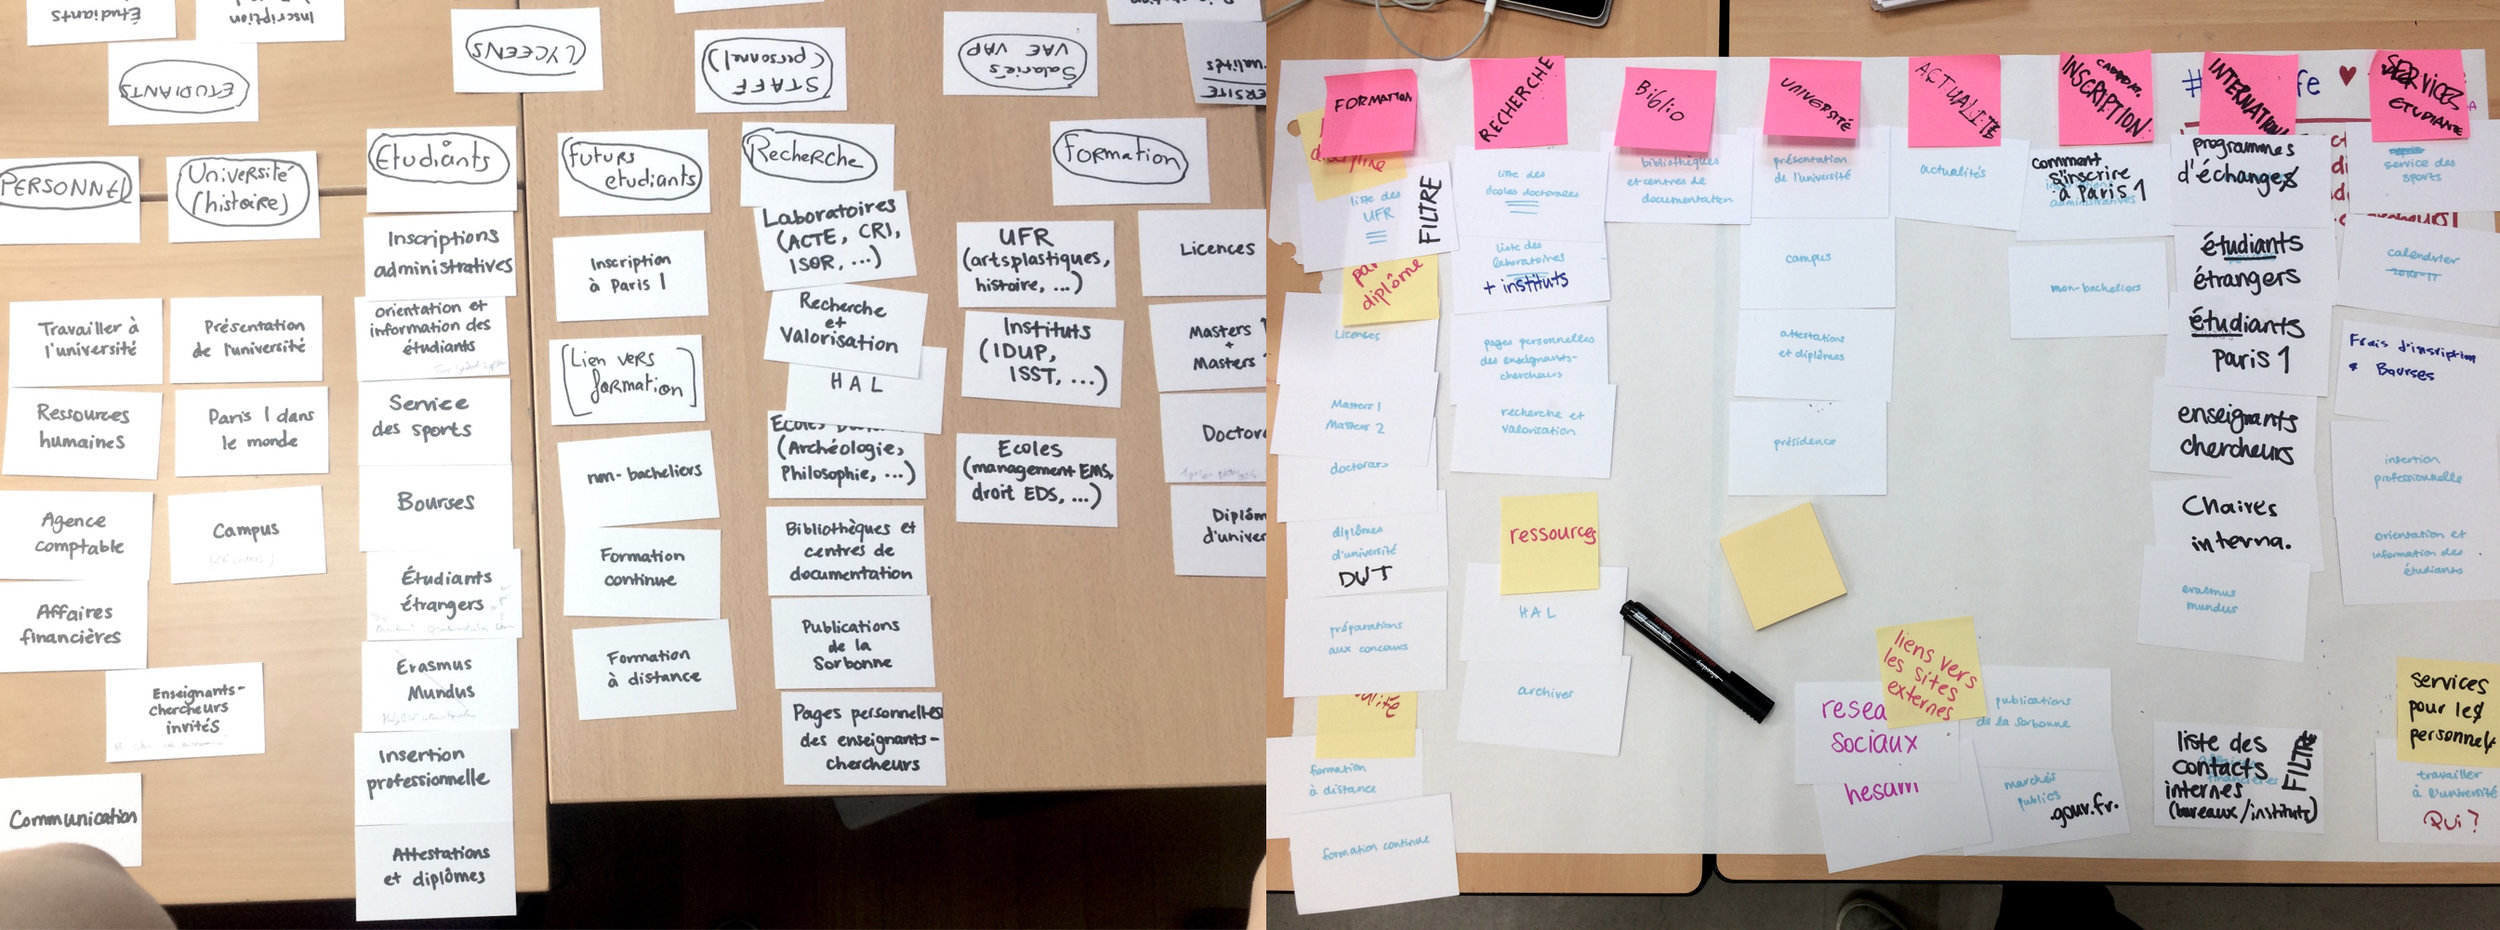 Étudiants
Inscription
ETUDIANTS
LYCEENS
STAFF
(personnel)
Salariés
VAE VAP
PERSONNEL
Université
(histoire)
Etudiants
futurs
etudiants
Recherche
formation
Travailler à
l'université
Ressources
humaines
Agence
comptable
Affaires
financières
Enseignants-
chercheurs
invités
Communication
Présentation
de l'université
Paris 1 dans
le monde
Campus
Inscriptions
administratives
orientation et
information des
étudiants
Service
des sports
Bourses
Étudiants
étrangers
Erasmus
Mundus
Insertion
professionnelle
Attestations
et diplômes
Inscription
à Paris 1
[Lien vers
formation]
non-bacheliers
Formation
continue
Formation
à distance
Laboratoires
(ACTE, CRI,
ISOR, ...)
Recherche
et
Valorisation
HAL
(Archéologie,
Philosophie, ...)
Bibliothèques et
centres de
documentation
Publications
de la
Sorbonne
Pages personnelles
des enseignants-
chercheurs
UFR
(arts plastiques,
histoire, ...)
Instituts
(IDUP,
ISST, ...)
Ecoles
(management EMS,
droit EDS, ...)
Licences
Masters 1
+
Masters
FORMATION
discipline
liste des
UFR
FILTRE
par
diplôme
Licences
Masters 1
Masters 2
doctorats
diplômes
d'université
DUT
préparations
aux concours
formation
à distance
formation continue
RECHERCHE
liste des
écoles doctorales
liste des
laboratoires
+ instituts
pages personnelles
des enseignants-
chercheurs
recherche et
valorisation
ressources
HAL
archives
Biblio
bibliothèques
et centres de
documentation
UNIVERSITÉ
présentation
de l'université
campus
attestations
et diplômes
présidence
ACTUALITÉ
actualités
liens vers
les sites
externes
sociaux
hesam
publications
de la Sorbonne
marchés
publics
.gouv.fr.
INSCRIPTION
comment
s'inscrire
à Paris 1
administratives
non-bacheliers
INTERNATIONAL
programmes
d'échanges
étudiants
étrangers
étudiants
paris 1
enseignants
chercheurs
Chaires
interna.
erasmus
mundus
liste des
contacts
internes
(bureaux/instituts)
FILTRE
SERVICES
ETUDIANTS
service des
sports
calendrier
2016-17
Frais d'inscription
+ Bourses
insertion
professionnelle
orientation et
information des
étudiants
services
pour les
personnels
travailler
à l'université
Qui ?